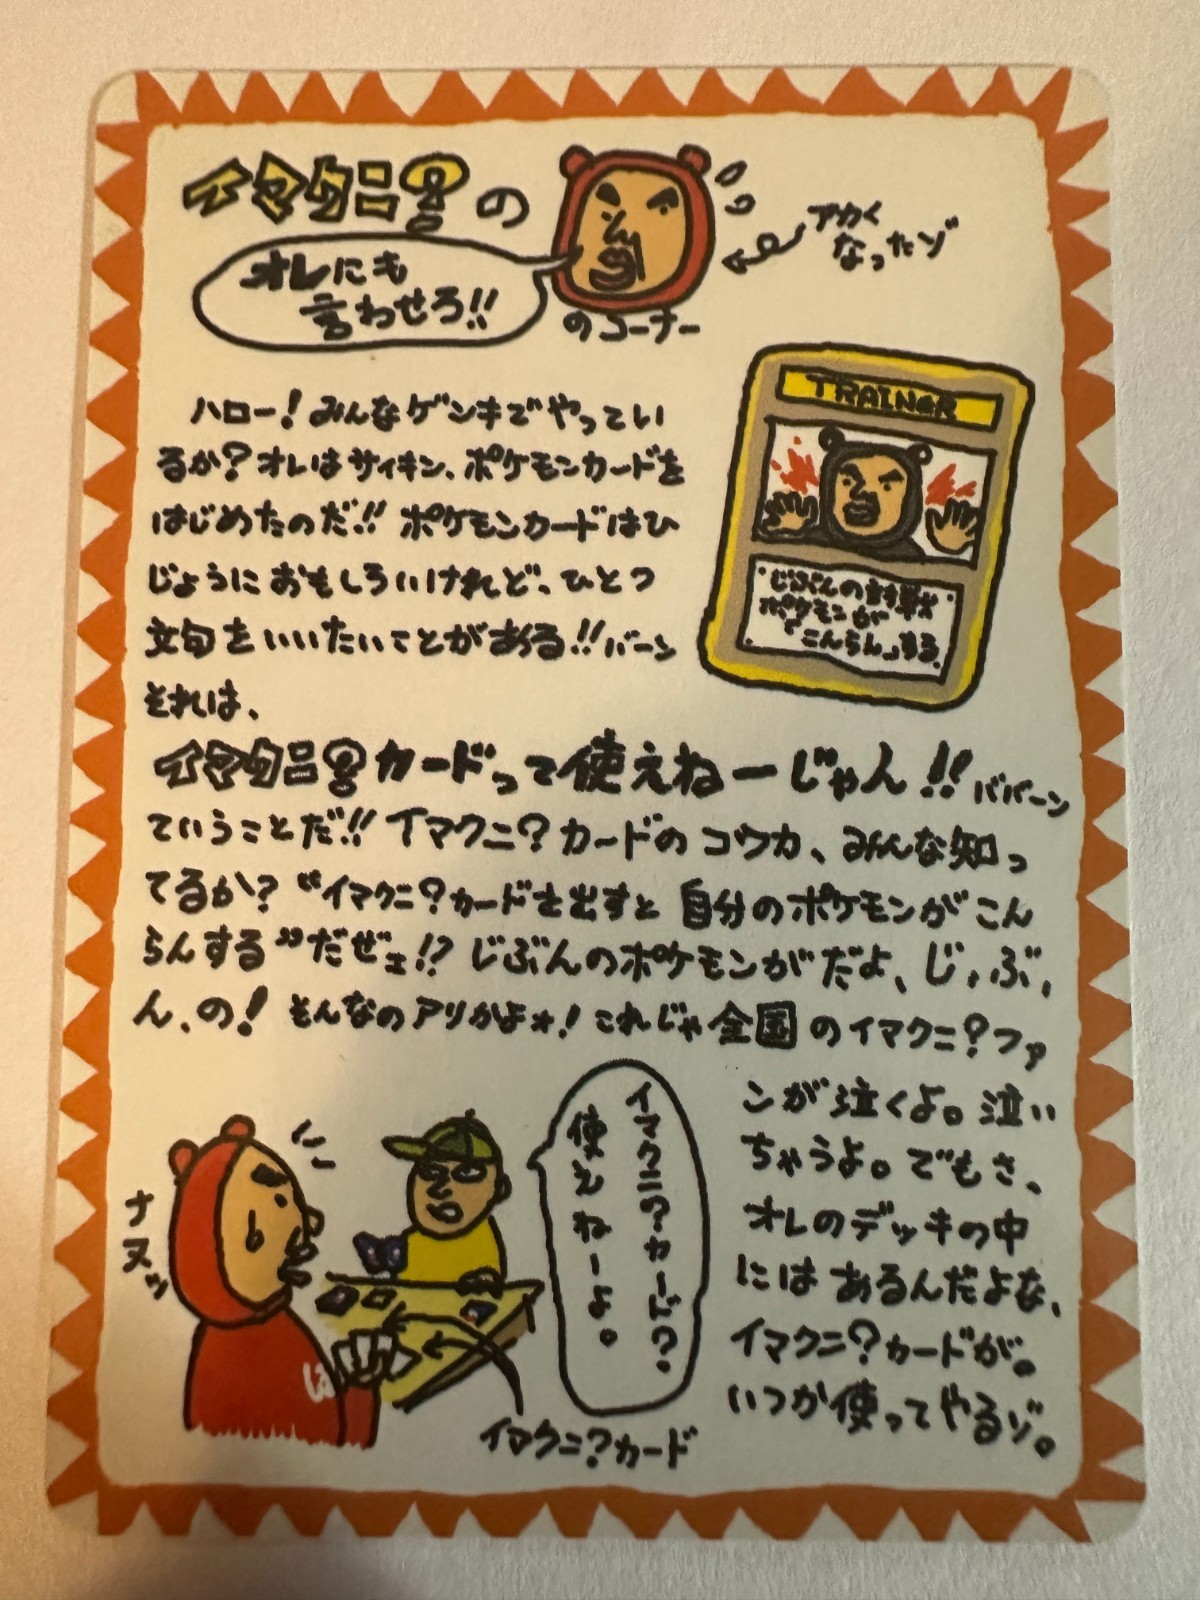 イマクニ?の
オレにも
言わせろ!!
のコーナー
アカく
なったゾ
ハロー!みんなゲンキでやってい
るか?オレはサイキン、ポケモンカードを
はじめたのだ!!ポケモンカードはひ
じょうにおもしろいけれど、ひとつ
文句をいいたいことがある!!バーン
それは、
TRAINER
・じぶんの対戦
ポケモンが
「こんらん」する。
イマクニ?カードって使えねーじゃん!!ババーン
ていうことだ!!イマクニ?カードのコウカ、みんな知っ
てるか?“イマクニ?カードを出すと自分のポケモンがこん
らんする”だぜェ!?じぶんのポケモンがだよ、じ、ぶ、
ん、の!そんなのアリかよォ!これじゃ全国のイマクニ?ファ
ンが泣くよ。泣い
ちゃうよ。でもさ、
オレのデッキの中
にはあるんだよな、
イマクニ?カードが。
いつか使ってやるゾ。
ナヌッ
イマクニ?カード?
使えねーよ。
イマクニ?カード